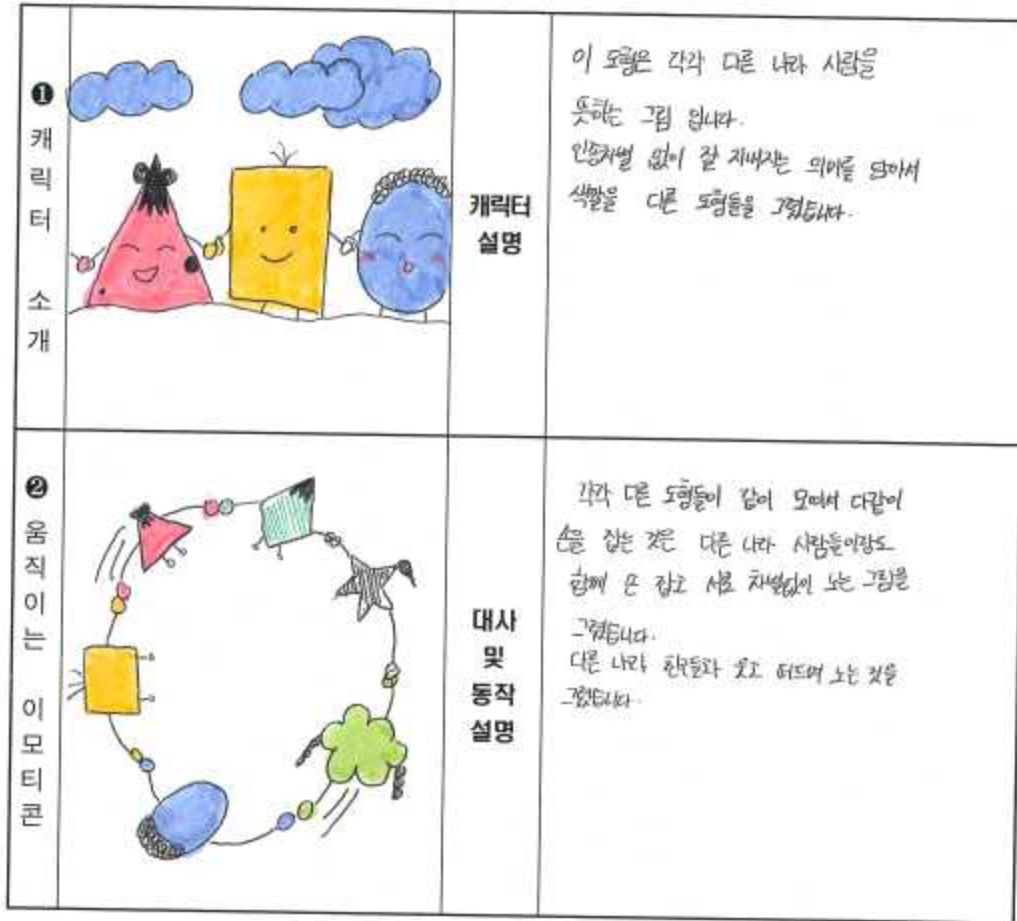 ❶ 캐릭터 소개
캐릭터
설명
이 도형은 각각 다른 나라 사람을
뜻하는 그림 입니다.
인종차별 없이 잘 지내자는 의미를 담아서
색깔을 다른 도형들을 그렸습니다.
❷ 움직이는 이모티콘
대사
및
동작
설명
각각 다른 도형들이 같이 모여서 다같이
손을 잡는 것은 다른 나라 사람들이랑도
함께 손 잡고 서로 차별없이 노는 그림을
그렸습니다.
다른 나라 친구들과 웃고 떠드며 노는 것을
그렸습니다.